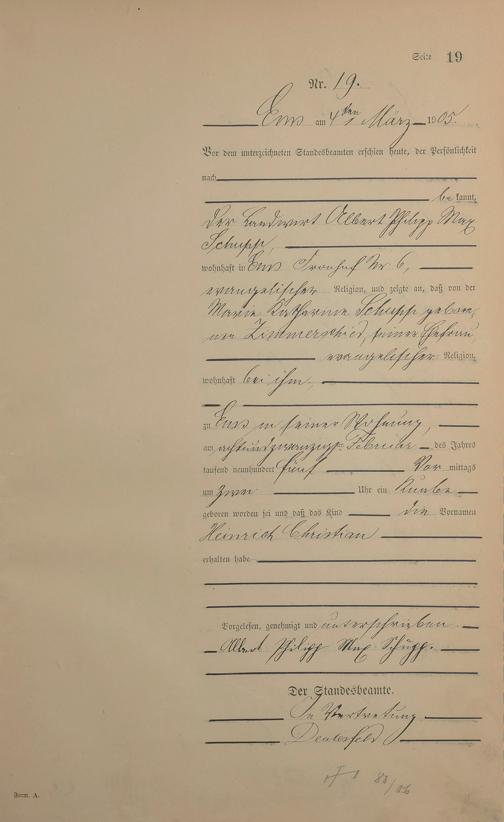 Seite 19
Nr. 19.
Ems am 4ten März 1905.
Vor dem unterzeichneten Standesbeamten erschien heute, der Persönlichkeit
nach
be kannt,
der Landwirt Albert Philipp Max
Schupp,
wohnhaft in Ems Fronhof Nr 6,
evangelischer Religion, und zeigte an, daß von der
Marie Katharine Schupp gebore-
nen Zimmerschied, seiner Ehefrau
evangelischer Religion,
wohnhaft bei ihm,
zu Ems in seiner Wohnung,
am achtundzwanzigsten Februar des Jahres
tausend neunhundert fünf Vor mittags
um zwei Uhr ein Knabe
geboren worden sei und daß das Kind die Vornamen
Heinrich Christian
erhalten habe
Vorgelesen, genehmigt und unterschrieben.
Albert Philipp Max Schupp.
Der Standesbeamte.
In Vertretung
Form. A.